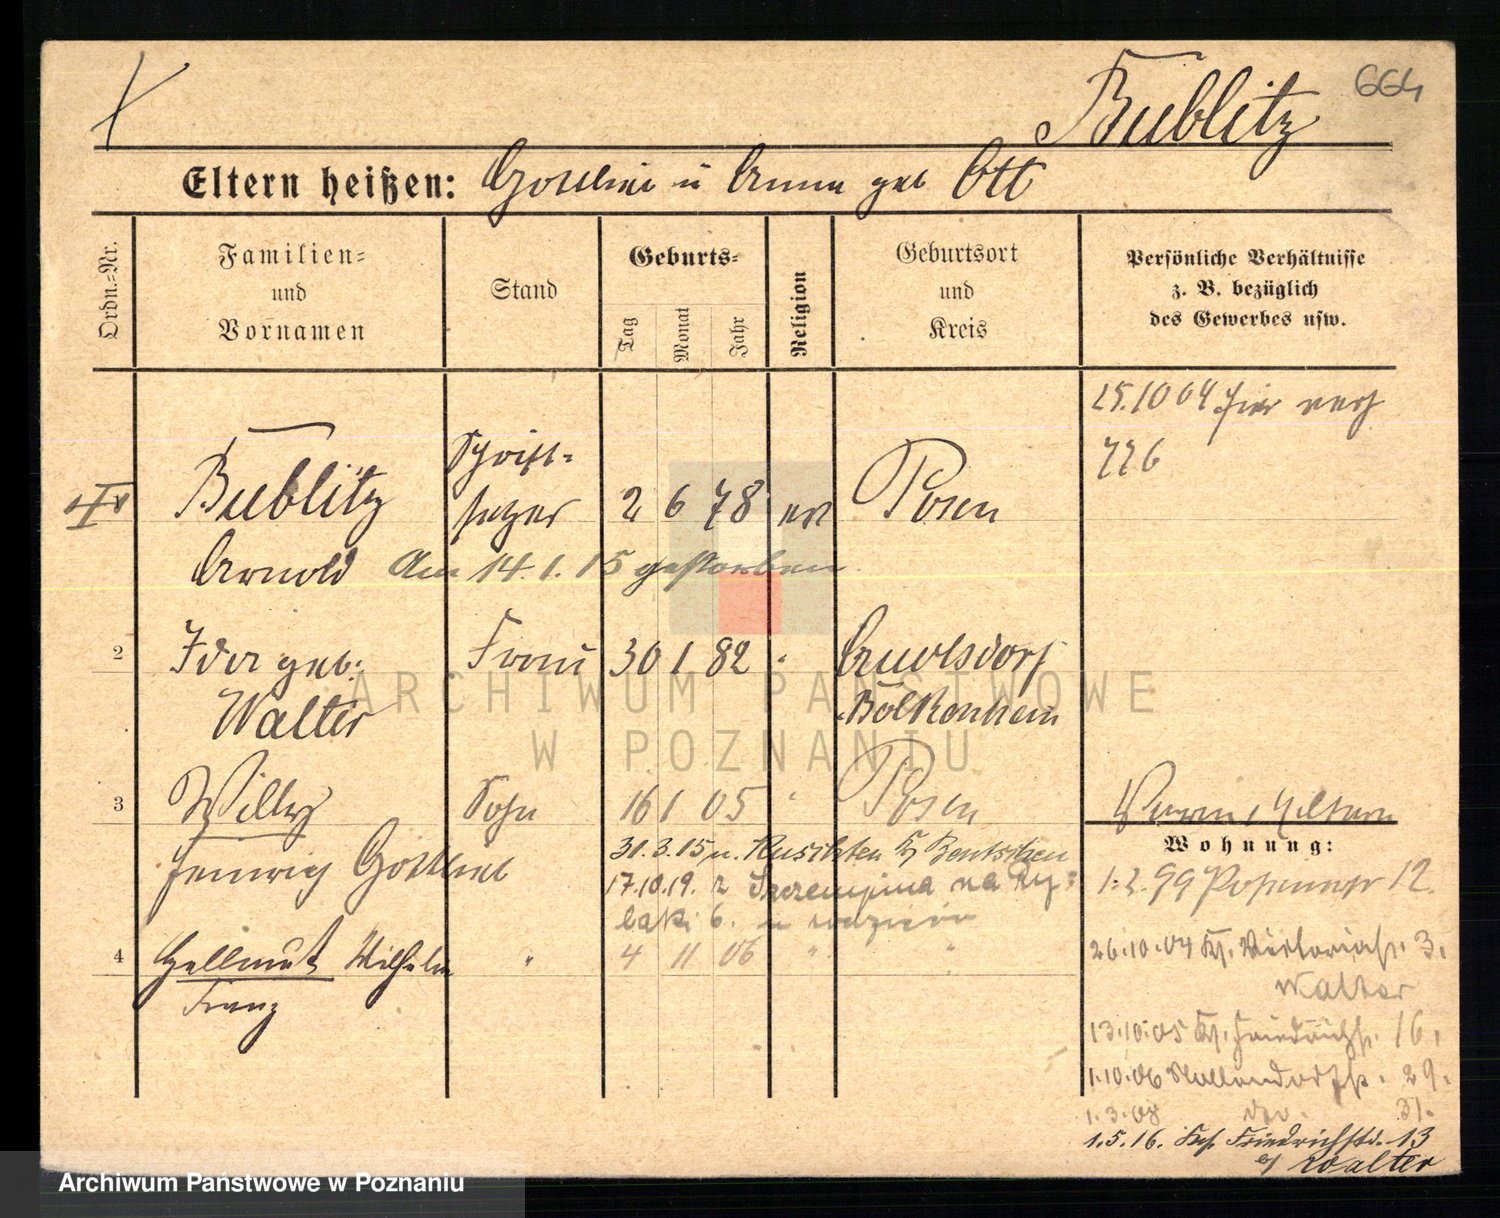 Bublitz
664
Eltern heißen: Gottlieb u Anna geb Ott
Ordn.-Nr.
Familien-
und
Vornamen
Stand
Geburts-
Tag
Monat
Jahr
Religion
Geburtsort
und
Kreis
Persönliche Verhältnisse
z. B. bezüglich
des Gewerbes usw.
25.10 04 hier
776
Bublitz
Schrift-
setzer
2 6 78 ev Posen
Arnold Am 14.1.15 gestorben
2 Ida geb: Frau 30 1 82 "
Walter Bolkenhain
3 Willy Sohn 16 1 05 " Posen
Heinrich Gottlieb
31.3.15 n. Kuschten b/ Bentschen
17.10.19. z na Ry-
baki 6. u rodziców
4 Hellmut Wilhelm " 4 11 06 " "
Franz
Wohnung:
1.2.99 12.
26.10.04 Viktoriastr. 3.
Walter
13.10.05 Friedrichstr. 16.
1.10.06 29.
1.3.08 do. 31.
1.5.16. Friedrichstr. 13
b/ Walter
ARCHIWUM PAŃSTWOWE
W POZNANIU
Archiwum Państwowe w Poznaniu